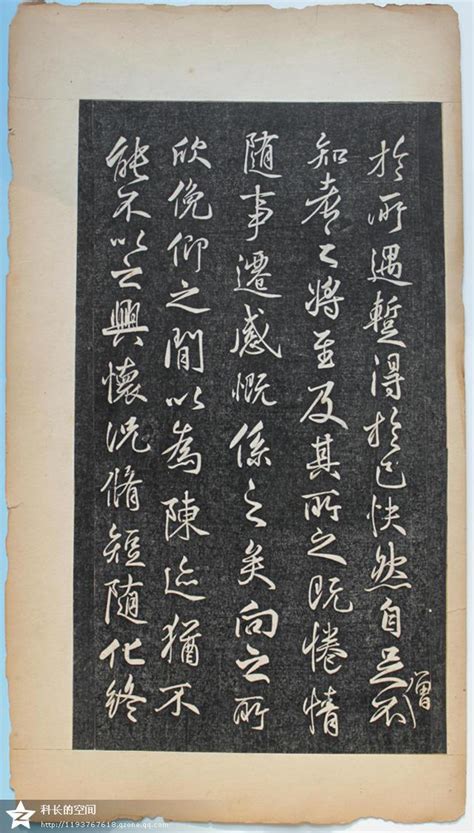 於所遇蹔得於己怏然自足不
僧
知老之將至及其所之既惓情
隨事遷感慨係之矣向之所
欣俛仰之閒以為陳迹猶不
能不以之興懷況脩短隨化終
科长的空间
http://1193767618.qzone.qq.com